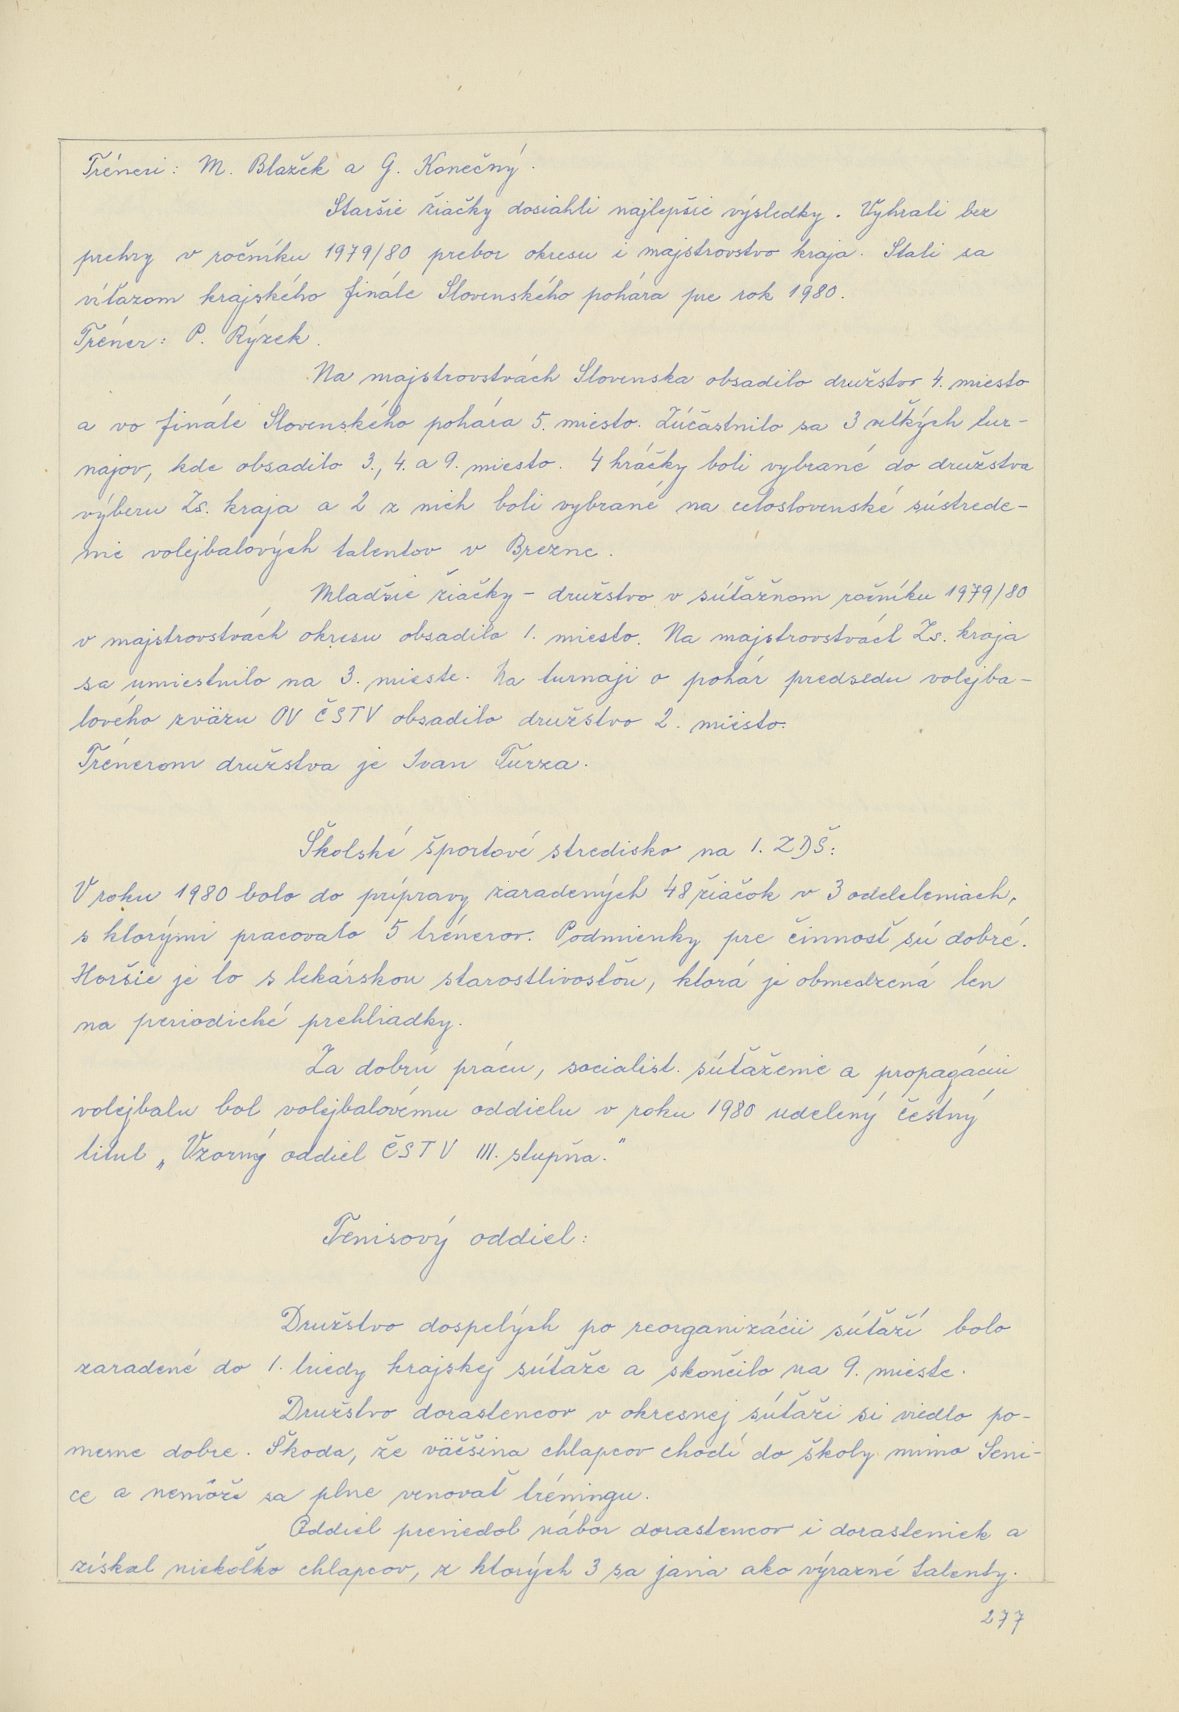 Tréneri: M. Blažek a G. Konečný.
Staršie žiačky dosiahli najlepšie výsledky. Vyhrali bez
prehry v ročníku 1979/80 prebor okresu i majstrovstvo kraja. Stali sa
víťazom krajského finále Slovenského pohára pre rok 1980.
Tréner: P. Rýzek.
Na majstrovstvách Slovenska obsadilo družstvo 4. miesto
a vo finále Slovenského pohára 5. miesto. Zúčastnilo sa 3 veľkých tur-
najov, kde obsadilo 3., 4. a 9. miesto. 4 hráčky boli vybrané do družstva
výberu Zs. kraja a 2 z nich boli vybrané na celoslovenské sústrede-
nie volejbalových talentov v Brezne.
Mladšie žiačky - družstvo v súťažnom ročníku 1979/80
v majstrovstvách okresu obsadilo 1. miesto. Na majstrovstvách Zs. kraja
sa umiestnilo na 3. mieste. Na turnaji o pohár predsedu volejba-
lového zväzu OV ČSTV obsadilo družstvo 2. miesto.
Trénerom družstva je Ivan Turza.
Školské športové stredisko na 1. ZDŠ:
V roku 1980 bolo do prípravy zaradených 48 žiačok v 3 oddeleniach,
s ktorými pracovalo 5 trénerov. Podmienky pre činnosť sú dobré.
Horšie je to s lekárskou starostlivosťou, ktorá je obmedzená len
na periodické prehliadky.
Za dobrú prácu, socialist. súťaženie a propagáciu
volejbalu bol volejbalovému oddielu v roku 1980 udelený čestný
titul „Vzorný oddiel ČSTV III. stupňa."
Tenisový oddiel:
Družstvo dospelých po reorganizácii súťaží bolo
zaradené do 1. triedy krajskej súťaže a skončilo na 9. mieste.
Družstvo dorastencov v okresnej súťaži si viedlo po-
merne dobre. Škoda, že väčšina chlapcov chodí do školy mimo Seni-
ce a nemôže sa plne venovať tréningu.
Oddiel previedol nábor dorastencov i dorasteniek a
získal niekoľko chlapcov, z ktorých 3 sa javia ako výrazné talenty.
277